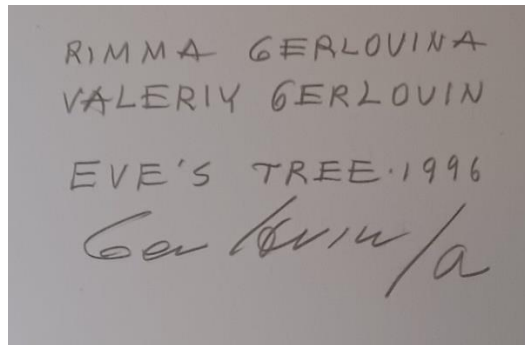 RIMMA GERLOVINA
VALERIY GERLOVIN
EVE'S TREE·1996
Gerlovin/a